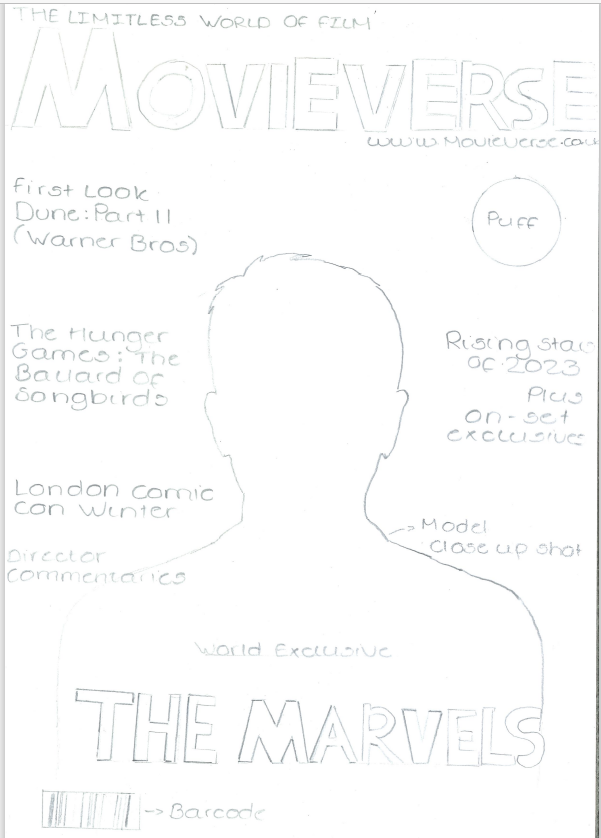 THE LIMITLESS WORLD OF FILM'
MOVIEVERSE
www.Movieverse.com
First Look
Dune: Part II
(Warner Bros)
Puff
The Hunger
Games: The
Ballard of
Songbirds
Rising star
of 2023
Plus
on-set
exclusives
London Comic
Con Winter
Model
Close up shot
Director
Commentaries
World Exclusive
THE MARVELS
Barcode